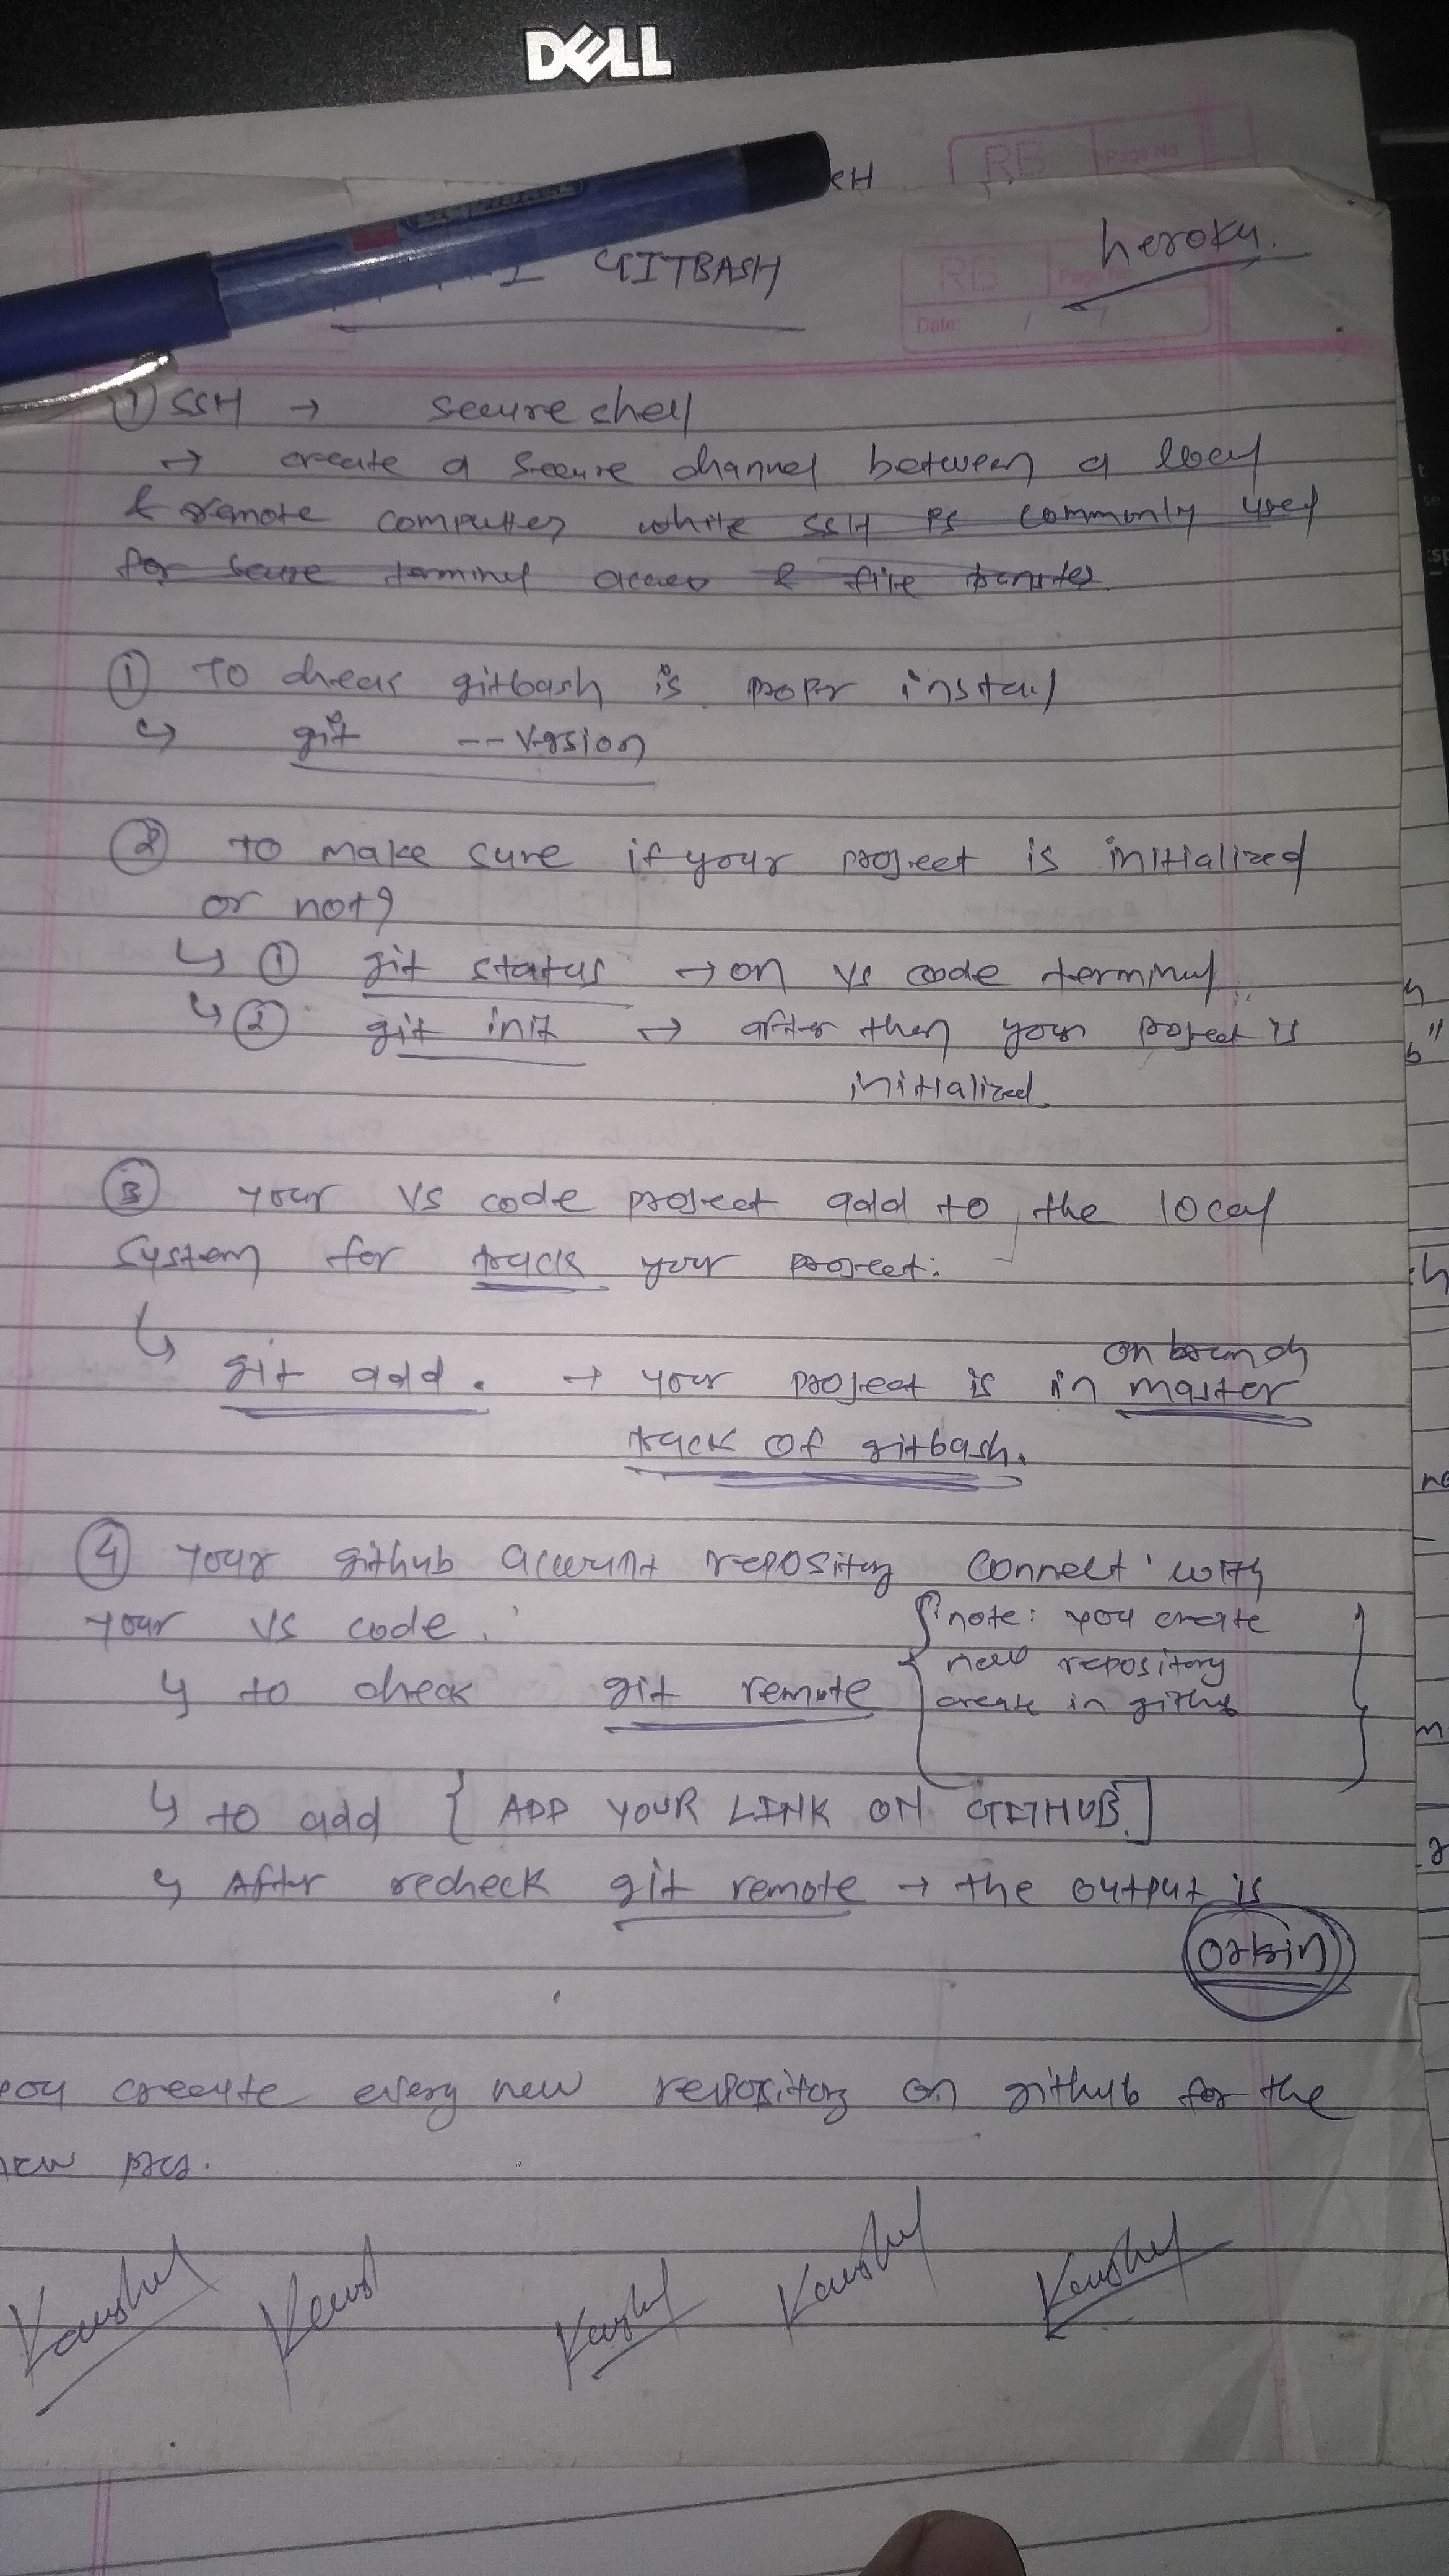 DELL
RB Page No
KH
heroku.
GITBASH
RB
Date: / /
① SSH → secure shell
→ create a secure channel between a local
& remote computer while SSH is commonly used
for secure terminal access & file transfer.
① TO cheak gitbash is propr install
↳ git --version
② TO make sure if your project is initialized
or not?
↳ ① git status → on VS code terminal
↳ ② git init → after then your project is
initialized.
③ your VS code project add to the local
system for track your project:
on branch
↳ git add . → your project is in master
track of gitbash.
④ your github account repository connect with
your VS code.
{ note: you create
new repository
create in github }
↳ to check git remote
↳ to add { ADD YOUR LINK ON GITHUB.]
↳ After recheck git remote → the output is
orisin
you creeate every new repository on github for the
new
Kaushal Kaush Kaushal Kaushal Kaushal